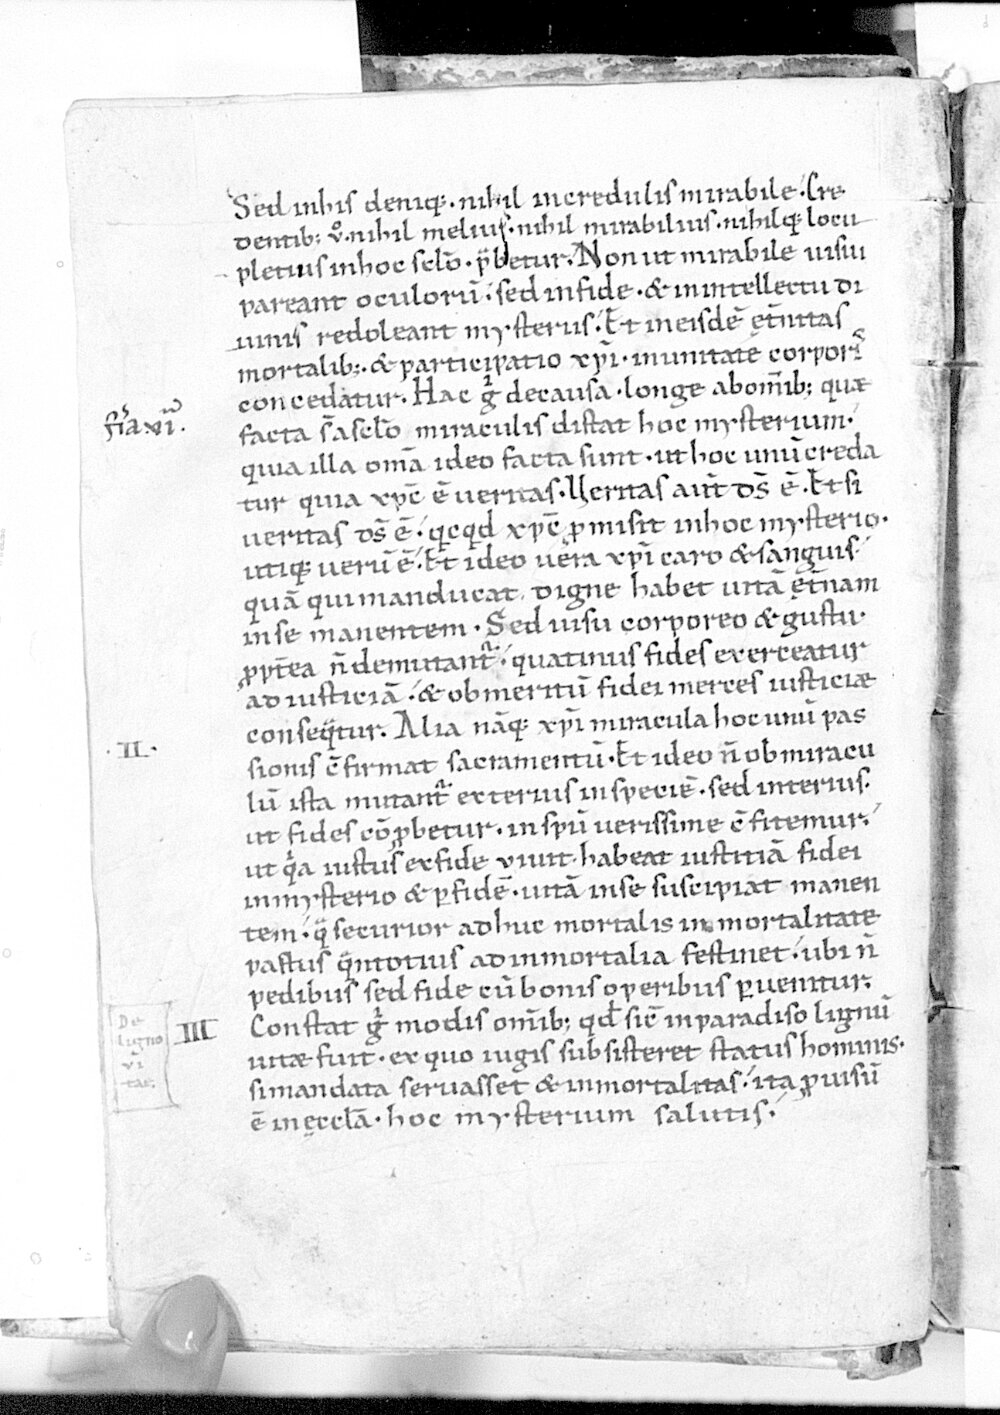 Sed inhis deniq;· nihil incredulis mirabile. Cre
dentib; v̊· nihil melius· nihil mirabilius· nihilq; locu
pletius inhoc sclo̅· p̅betur. Non ut mirabile uisui
pareant oculoru̅· sed infide· & inintellectu di
uinis redoleant mysteriis. Et ineisde̅ ęt̅nitas
mortalib;· & participatio xp̅i· inunitate corporis̅
concedatur. Hac g̊ decausa· longe abom̅ib; quæ
fr̅a vi̅.
facta s̅ asclo̅ miraculis distat hoc mysterium·
quia illa om̅a ideo facta sunt· ut hoc unu̅ creda
tur quia xpc̅ e̅ ueritas. Ueritas aut̅ ds̅ e̅. Et si
ueritas ds̅ e̅· qcqd xpc̅ ꝓmisit inhoc mysterio·
utiq; ueru̅ e̅. Et ideo uera xp̅i caro & sanguis·
qua̅ qui manducat digne habet uita̅ ęt̅nam
inse manentem· Sed uisu corporeo & gustu·
ꝓpt̅ea n̅ demutant̅· quatinus fides exerceatur
ad iusticia̅· & obmeritu̅ fidei merces iusticiæ
conseq̅tur. Alia na̅q; xp̅i miracula hoc unu̅ pas
·II·
sionis c̅firmat sacramentu̅· Et ideo n̅ ob miracu
lu̅ ista mutant̅ exterius inspecie̅· sed interius·
ut fides co̅ꝓbetur· inspu̅ uerissime c̅fitemur·
ut q̅a iustus exfide viuit· habeat iustitia̅ fidei
inmysterio & ꝑfide̅· uita̅ inse suscipiat manen
tem· q̅ securior adhuc mortalis inmortalitate
pastus q̅ntotius adinmortalia festinet· ubi n̅
pedibus sed fide cu̅ bonis operibus ꝑuenitur.
De
ligno
vi
tae.
III
Constat g̊ modis om̅ib; qd̅ sic̅ inparadiso lignu̅
uitæ fuit· ex quo iugis subsisteret status hominis·
si mandata seruasset & inmortalitas· ita ꝓuisu̅
e̅ inęccla̅· hoc mysterium salutis·